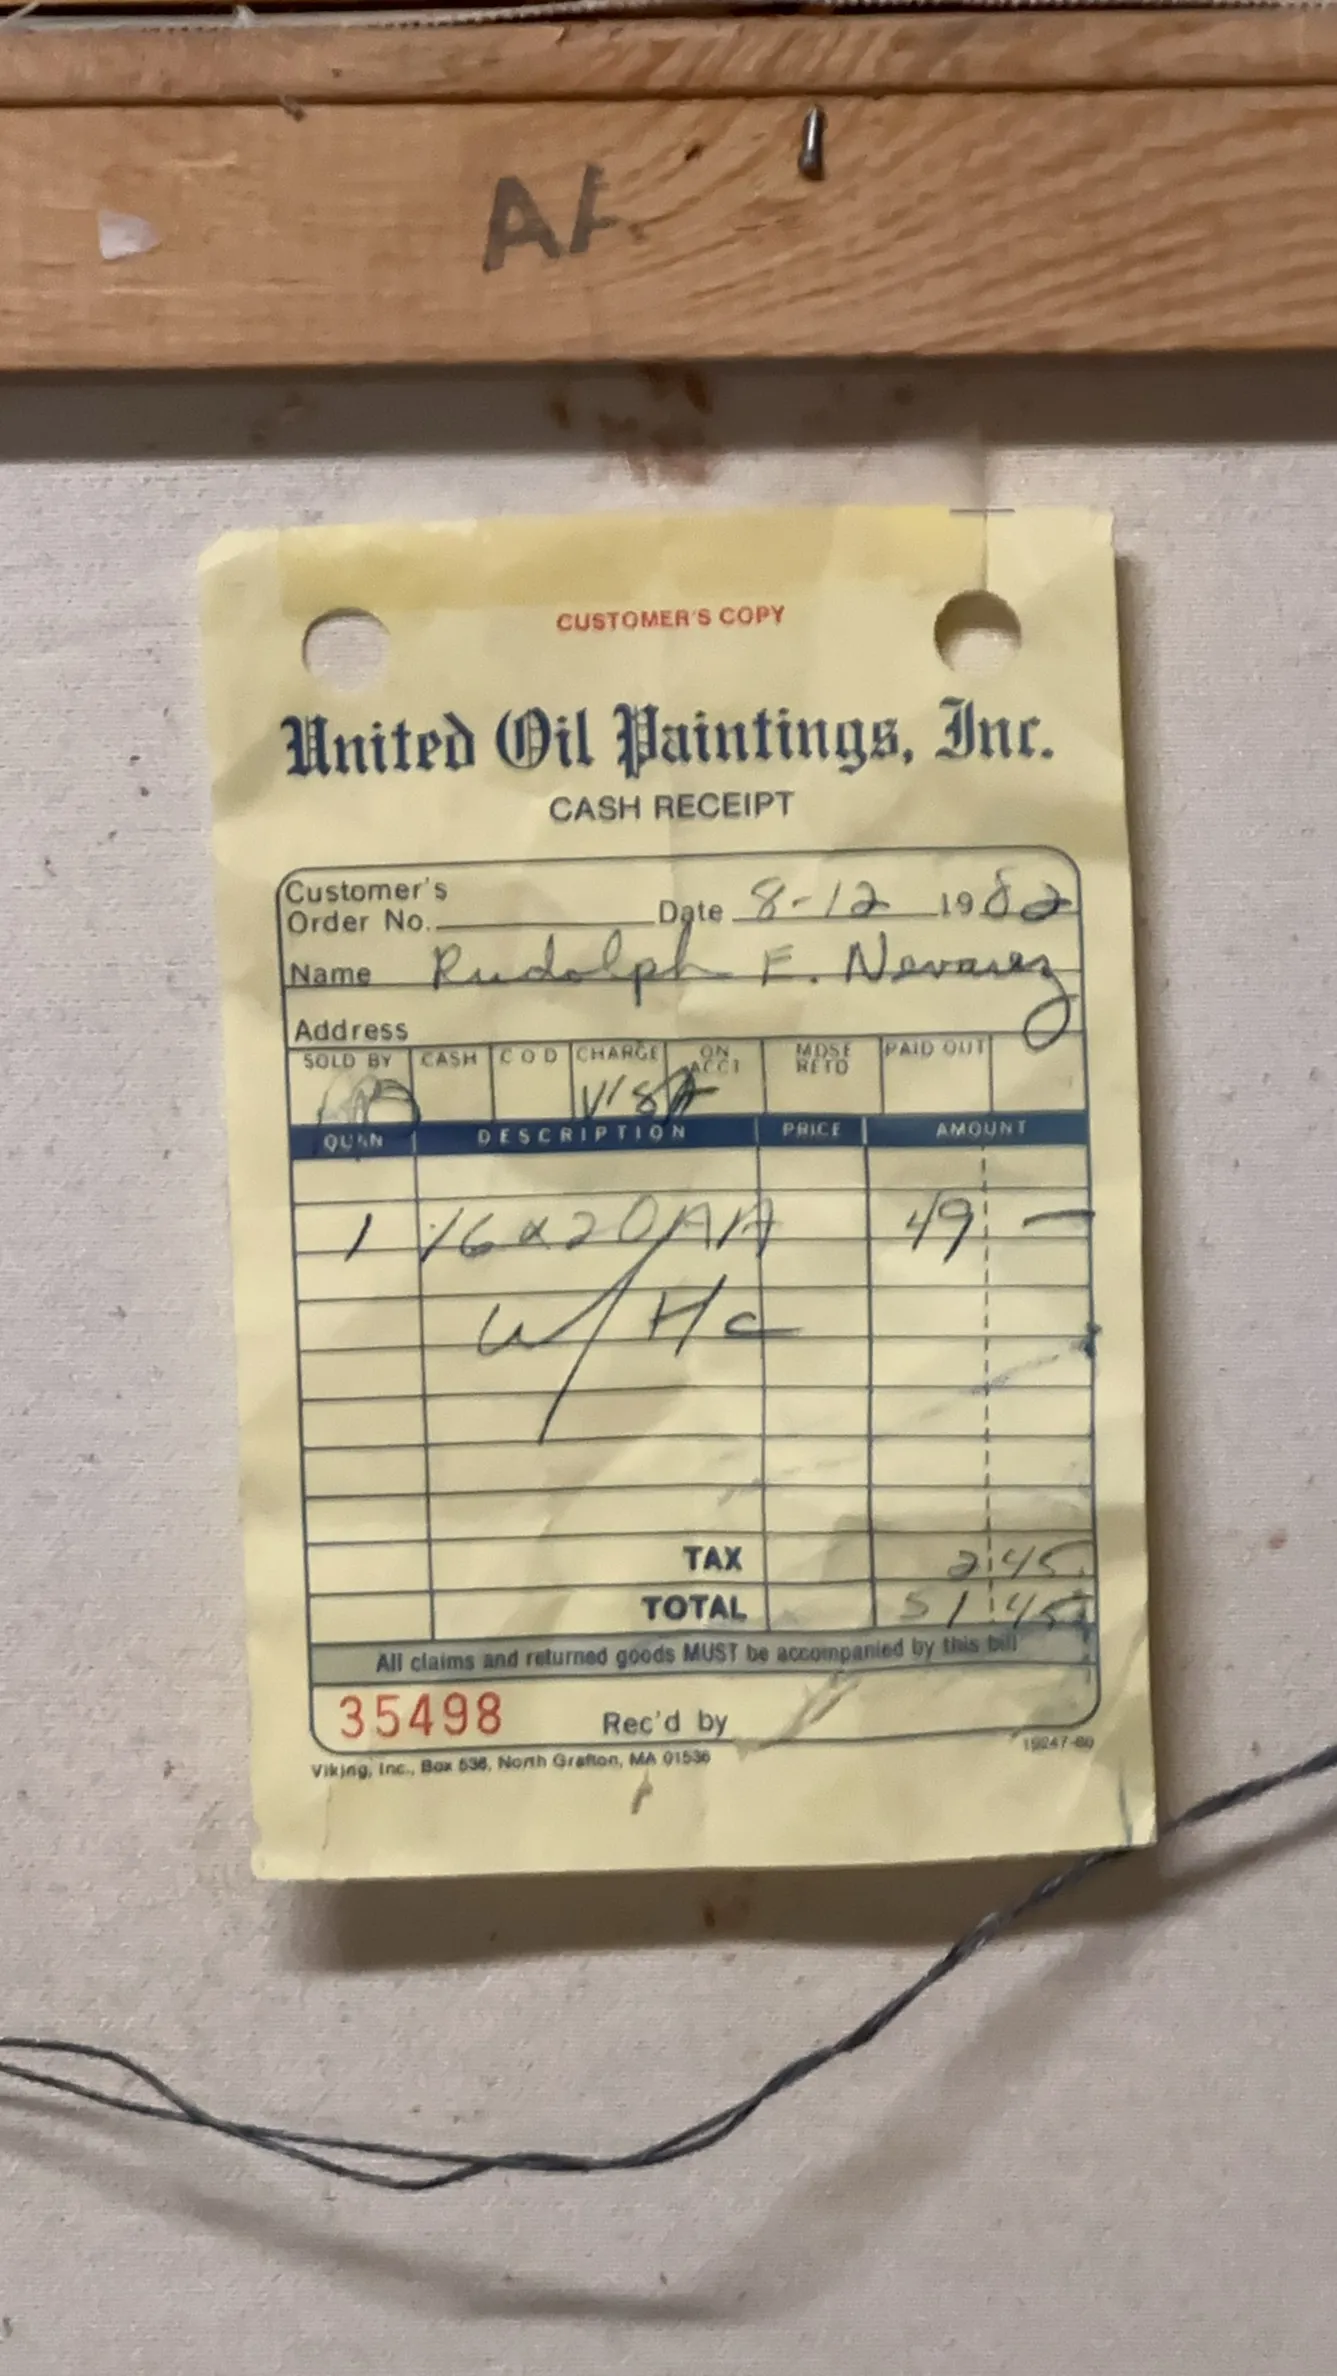 AA
CUSTOMER'S COPY
United Oil Paintings, Inc.
CASH RECEIPT
Customer's
Order No. Date 8-12 1982
Name Rudolph E. Nevarez
Address
SOLD BY CASH C O D CHARGE ON ACCT MDSE RETD PAID OUT
VISA
QUAN DESCRIPTION PRICE AMOUNT
1 16x20 AA 49 —
w/ Hc
TAX 2 45
TOTAL 51 45
All claims and returned goods MUST be accompanied by this bill
35498 Rec'd by
Viking, Inc., Box 536, North Grafton, MA 01536 19247-80